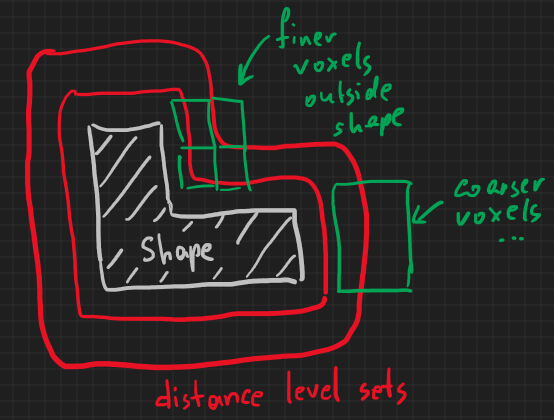 finer
voxels
outside
shape
coarser
voxels
...
Shape
distance level sets